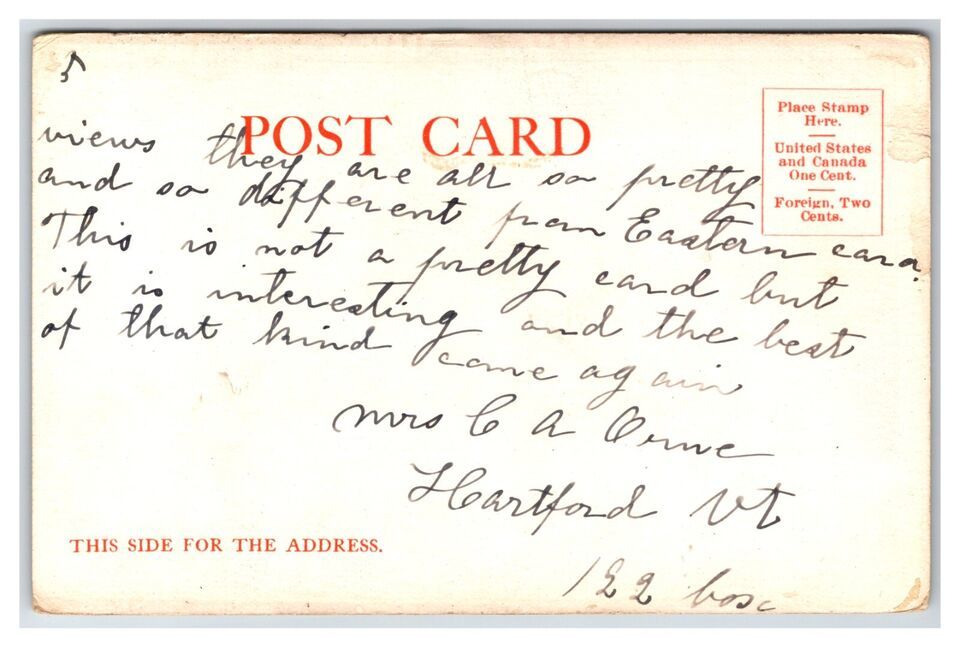 5
POST CARD
Place Stamp
Here.
United States
and Canada
One Cent.
Foreign, Two
Cents.
views they are all so pretty
and so different from Eastern card
This is not a pretty card but
it is interesting and the best
of that kind come again
Mrs C A Orne
Hartford Vt
122 box
THIS SIDE FOR THE ADDRESS.